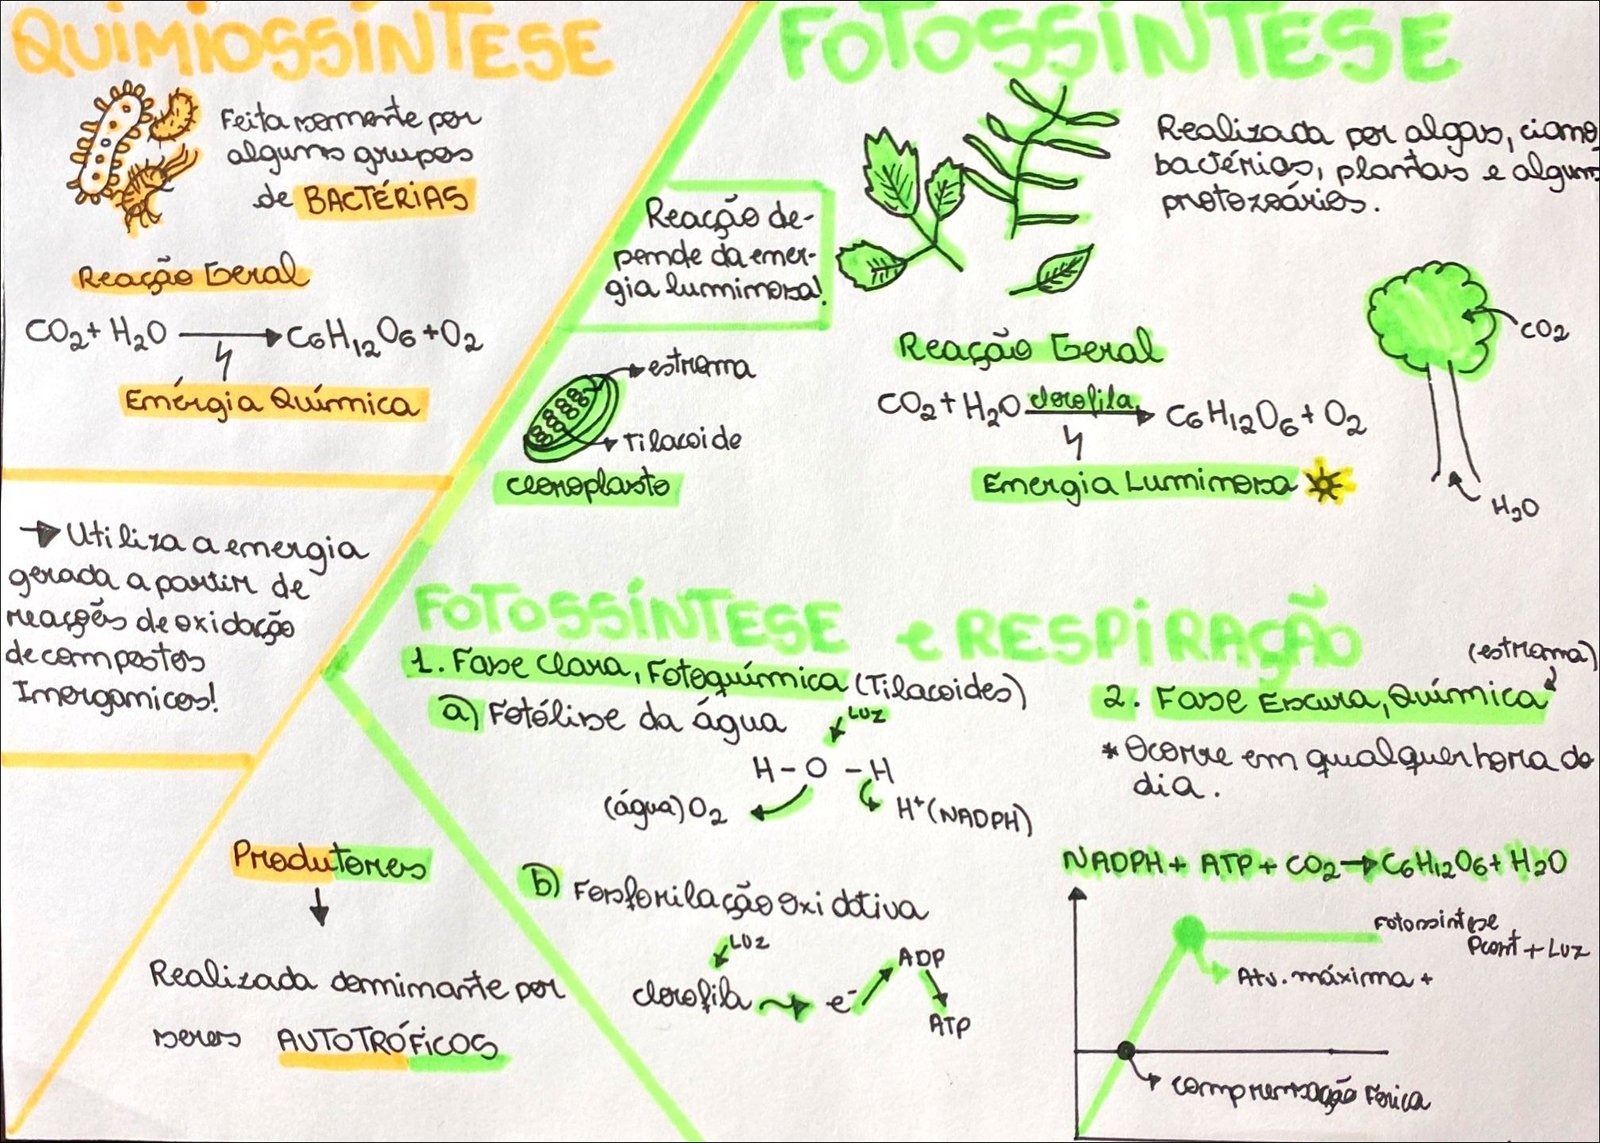 QUIMIOSSÍNTESE
Feita somente por
alguns grupos
de BACTÉRIAS
Reação Geral
CO2 + H2O → C6H12O6 + O2
Enérgia Química
→ Utiliza a energia
gerada a partir de
reações de oxidação
de compostos
Inorganicos!
Produtores
Realizada
por
seres AUTOTRÓFICOS
FOTOSSÍNTESE
Reação de-
pende da ener-
gia luminosa!
Realizada por algas, ciano
bactérias, plantas e alguns
protozoários.
estroma
Tilacoide
cloroplasto
Reação Geral
CO2 + H2O clorofila → C6H12O6 + O2
Energia Luminosa
CO2
H2O
FOTOSSÍNTESE e RESPIRAÇÃO
1. Fase Clara, Fotoquímica (Tilacoides)
a) Fotólise da água
LUZ
H - O - H
(água) O2
H+ (NADPH)
b) Fosforilação Oxidativa
LUZ
clorofila → e- ADP
ATP
(estroma)
2. Fase Escura, Química
* Ocorre em qualquer hora do
dia.
NADPH + ATP + CO2 → C6H12O6 + H2O
Fotossíntese
+ LUZ
Atv. máxima +